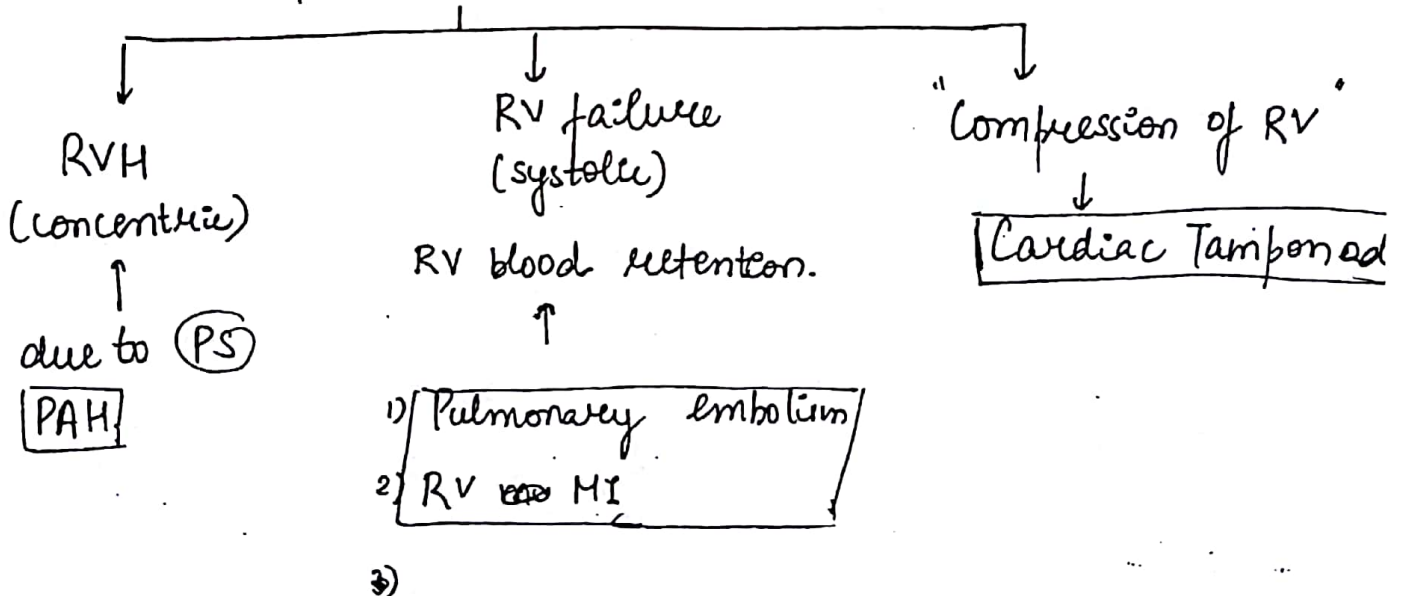 RVH
(concentric)
due to PS
PAH
RV failure
(systolic)
RV blood retention.
1) Pulmonary embolism
2) RV MI
3)
"Compression of RV"
Cardiac Tamponad